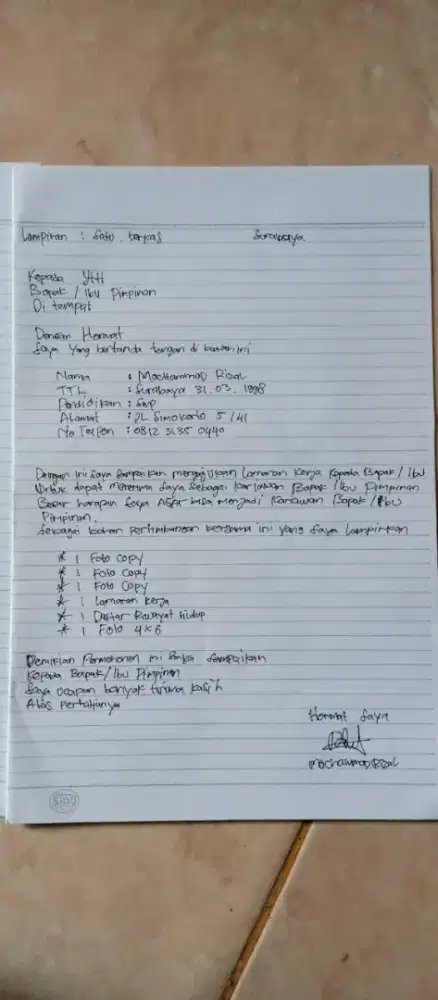 Lampiran : Satu berkas Surabaya
Kepada YTH
Bapak / Ibu Pimpinan
Di tempat
Dengan Hormat
Saya Yang bertanda tangan di bawah ini
Nama : Mochammad Rizal
TTL : Surabaya 31.03.1998
Pendidikan : Smp
Alamat : JL Simokerto 5 / 41
No Telpon : 0812 3135 0440
Dengan ini saya sampaikan mengajukan Lamaran Kerja Kepada Bapak / Ibu
Untuk dapat menerima saya sebagai karyawan Bapak / Ibu Pimpinan
Besar harapan saya Agar bisa menjadi Karyawan Bapak / Ibu
Pimpinan.
Sebagai bahan pertimbangan bersama ini yang saya Lampirkan
* 1 Foto Copy
* 1 Foto Copy
* 1 Foto Copy
* 1 Lamaran Kerja
* 1 Daftar Riwayat hidup
* 1 Foto 4x6
Demikian Permohonan ini sampaikan
Kepada Bapak / Ibu Pimpinan
Saya ucapan banyak terima kasih
Atas
Hormat Saya
Mochammad Rizal
SIDU